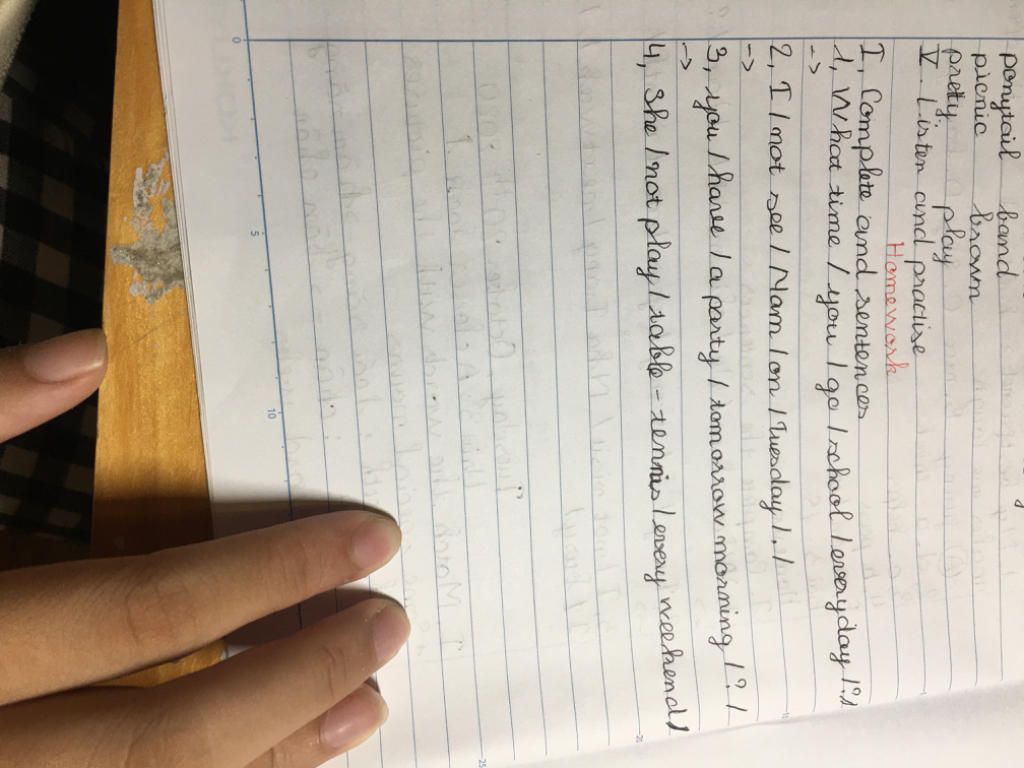 ponytail band
picnic brown
prety play
V. Listen and practise
Homework
I, Complete and sentences
1, What time / you / go / school / everyday /?/
->
2, I / not see / Nam / on / Tuesday /./
->
3, you / have / a party / tomorrow morning /?/
->
4, She / not play / table-tennis / every weekend /
0
5
10